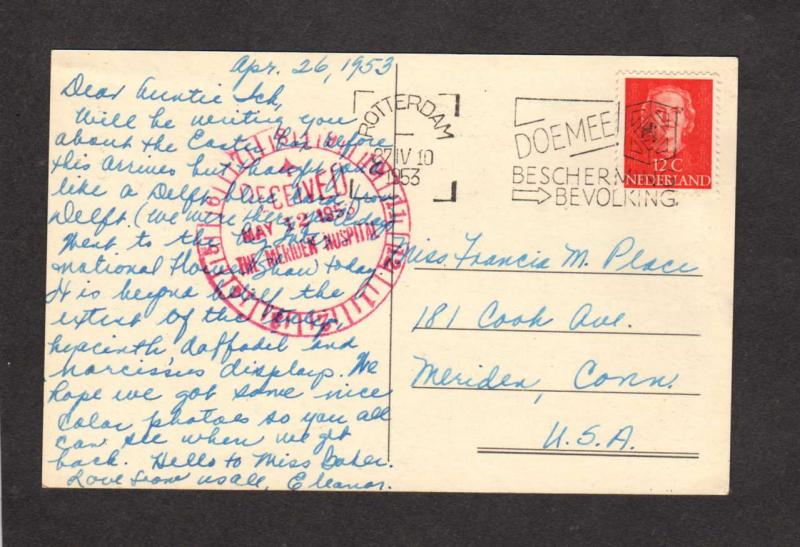 Apr. 26, 1953
Dear Auntie Ich,
Will be writing you
about the Easter before
this arrives but thought you'd
like a Delft blue card from
Delft (we were there yesterday)
Went to the
national Flower Show today
It is beyond belief the
extent of the tulip,
hyacinth daffodil and
narcissus displays. We
hope we got some nice
color photos so you all
can see when we get
back. Hello to Miss Baker.
Love from us all, Eleanor.
RECEIVED
MAY 12 1953
THE MERIDEN HOSPITAL
ROTTERDAM
27 IV 10
1953
DOEMEE
BESCHERM
BEVOLKING
12 C
NEDERLAND
Miss Francia M. Place
181 Cook Ave.
Meriden, Conn.
U.S.A.